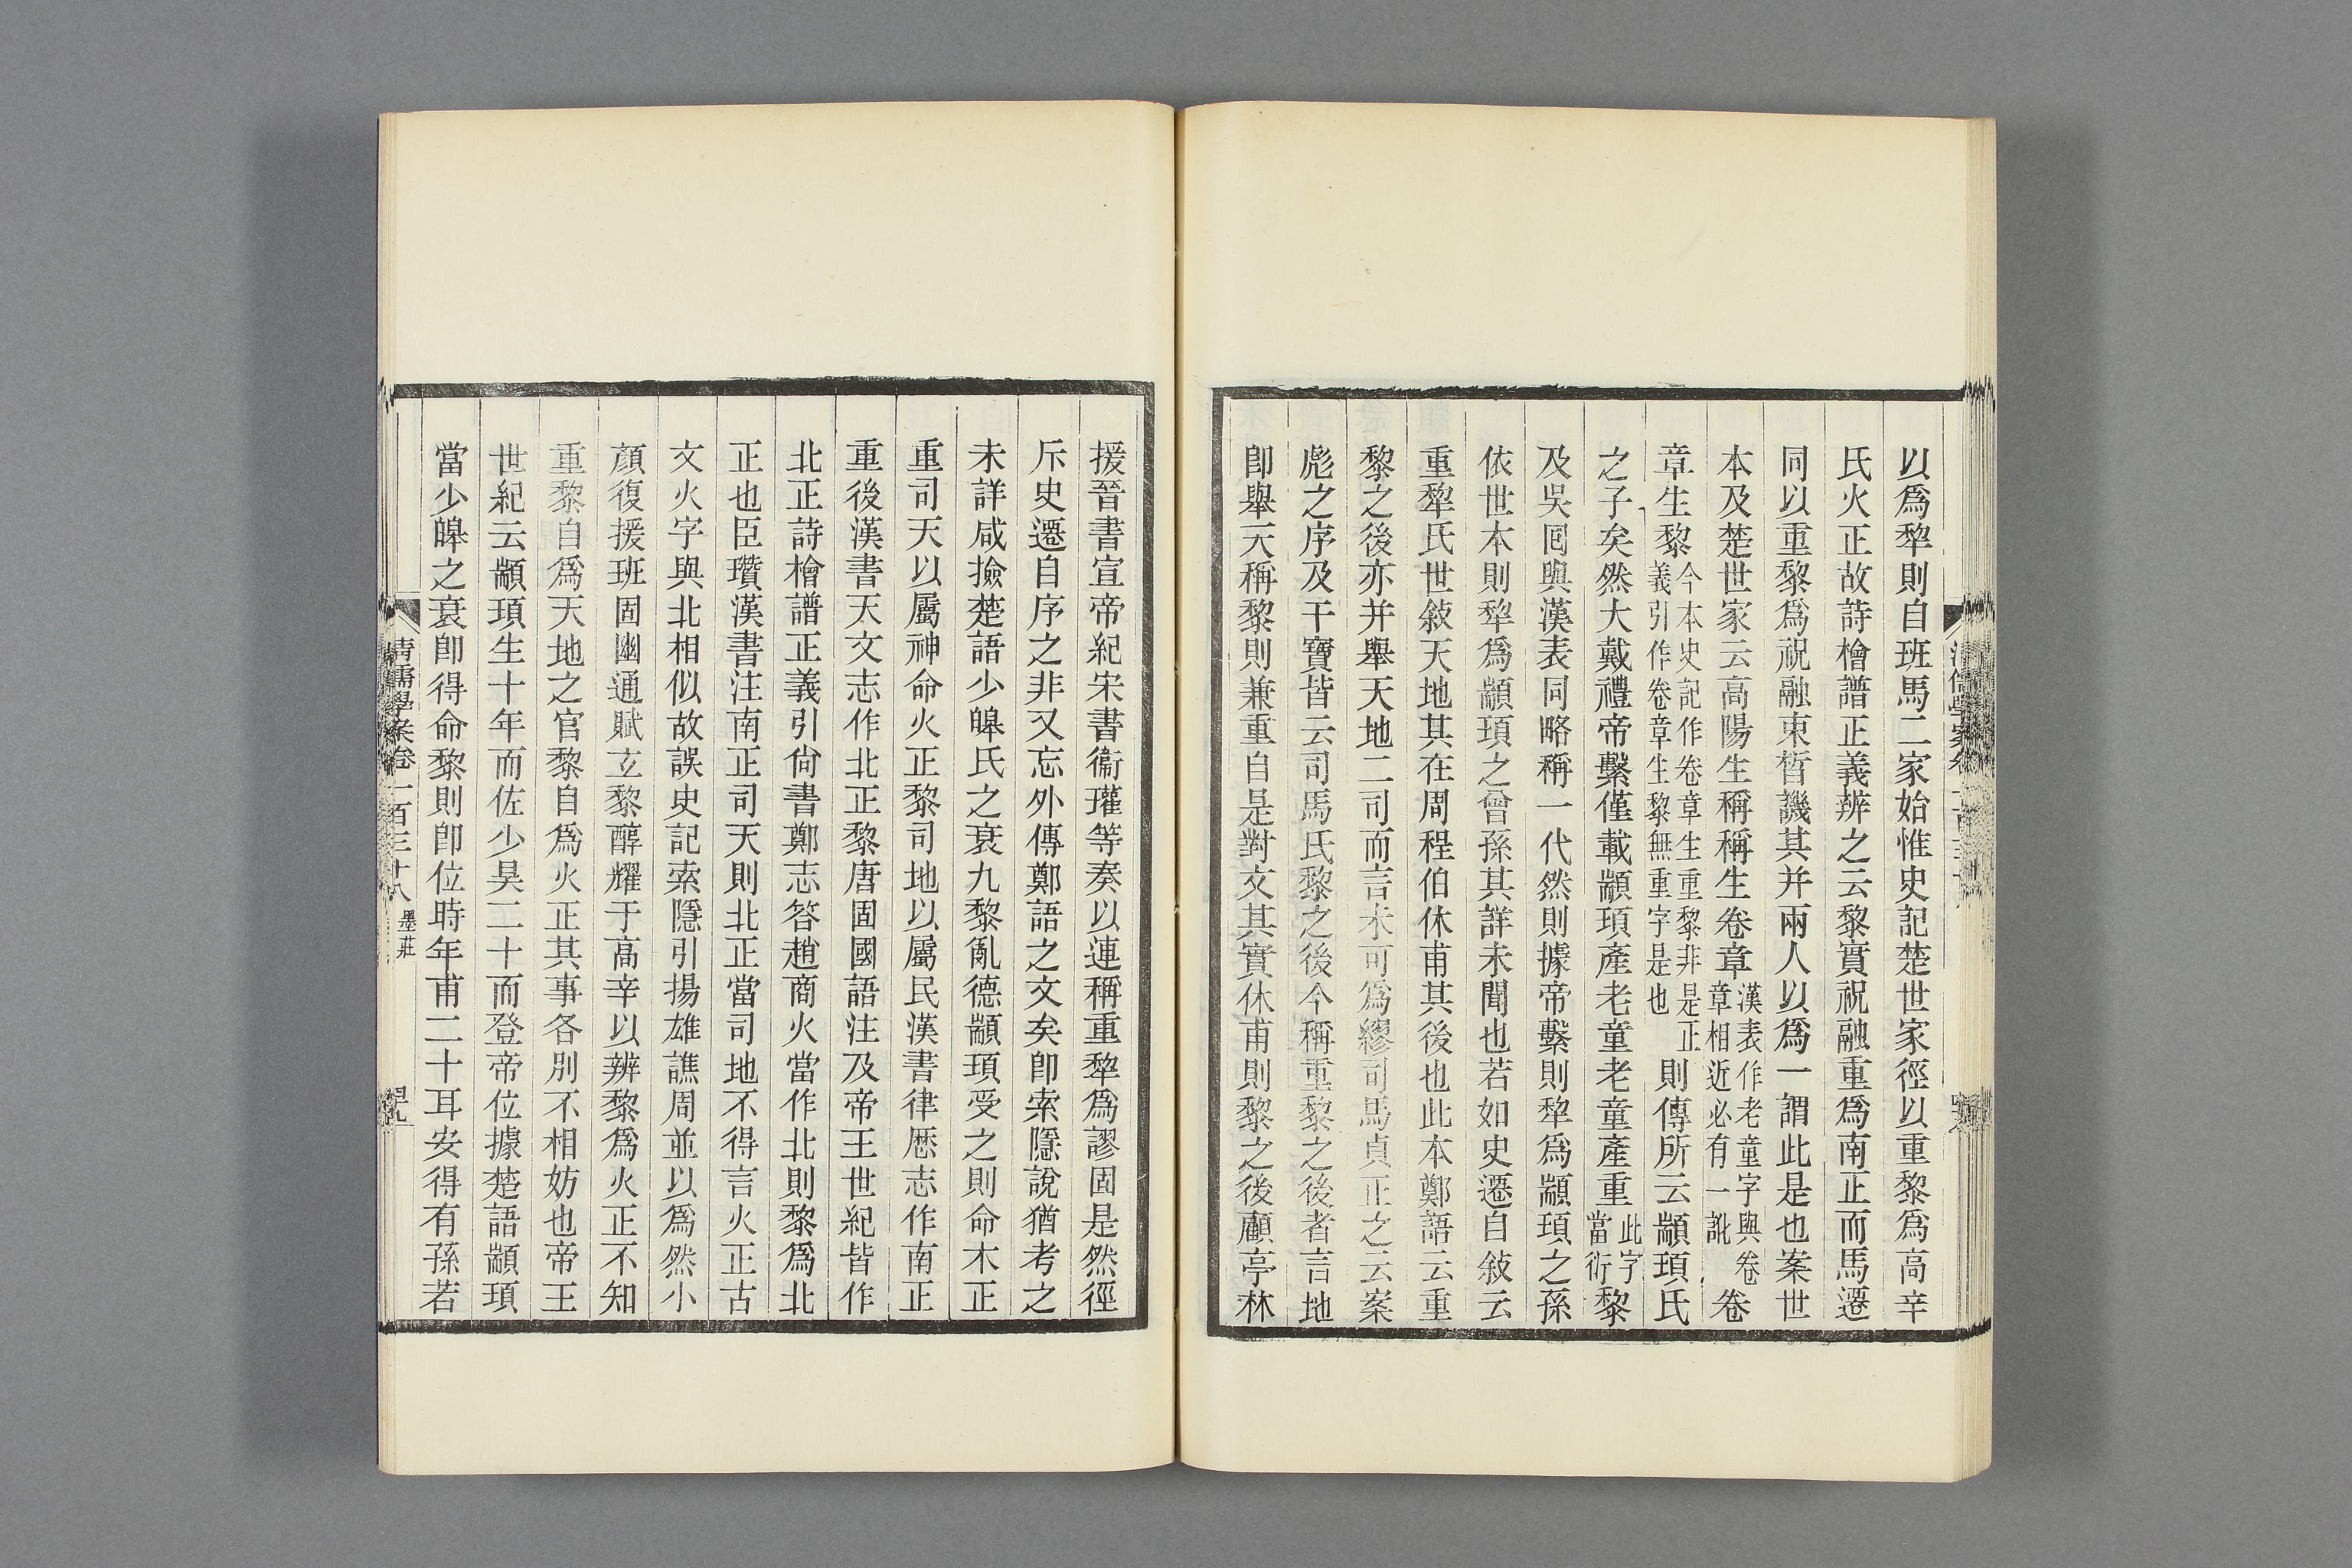 以爲犂則自班馬二家始惟史記楚世家徑以重黎爲高辛
氏火正故詩檜譜正義辨之云黎實祝融重爲南正而馬遷
同以重黎爲祝融束晳譏其并兩人以爲一謂此是也案世
本及楚世家云高陽生稱稱生卷章漢表作老童字與卷章相近必有一訛卷
章生黎今本史記作卷章生重黎非是正義引作卷章生黎無重字是也則傳所云顓頊氏
之子矣然大戴禮帝繫僅載顓頊產老童老童產重此字當衍黎
及吳回與漢表同略稱一代然則據帝繫則犂爲顓頊之孫
依世本則犂爲顓頊之曾孫其詳未聞也若如史遷自敍云
重犂氏世敍天地其在周程伯休甫其後也此本鄭語云重
黎之後亦并舉天地二司而言未可爲繆司馬貞正之云案
彪之序及干寶皆云司馬氏黎之後今稱重黎之後者言地
卽舉天稱黎則兼重自是對文其實休甫則黎之後顧亭林
援晉書宣帝紀宋書衞瓘等奏以連稱重犂爲謬固是然徑
斥史遷自序之非又忘外傳鄭語之文矣卽索隱說猶考之
未詳咸撿楚語少皞氏之衰九黎亂德顓頊受之則命木正
重司天以屬神命火正黎司地以屬民漢書律厯志作南正
重後漢書天文志作北正黎唐固國語注及帝王世紀皆作
北正詩檜譜正義引尙書鄭志答趙商火當作北則黎爲北
正也臣瓚漢書注南正司天則北正當司地不得言火正古
文火字與北相似故誤史記索隱引揚雄譙周並以爲然小
顏復援班固幽通賦玄黎醇耀于高辛以辨黎爲火正不知
重黎自爲天地之官黎自爲火正其事各別不相妨也帝王
世紀云顓頊生十年而佐少昊二十而登帝位據楚語顓頊
當少皞之衰卽得命黎則卽位時年甫二十耳安得有孫若
清儒學案卷一百三十八 墨莊